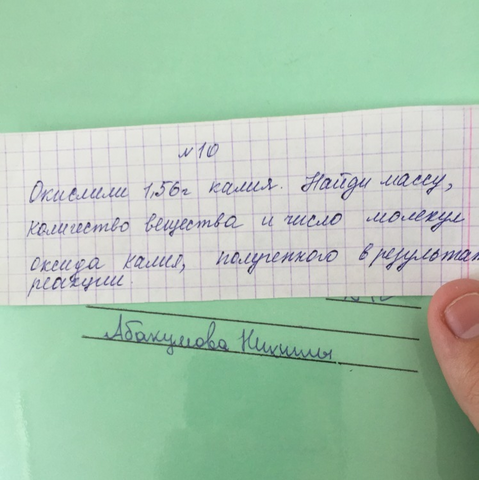 №10
Окислили 1,56г калия. Найди массу,
количество вещества и число молекул
оксида калия, полученного в результат
реакции.
Абакумова Никиты